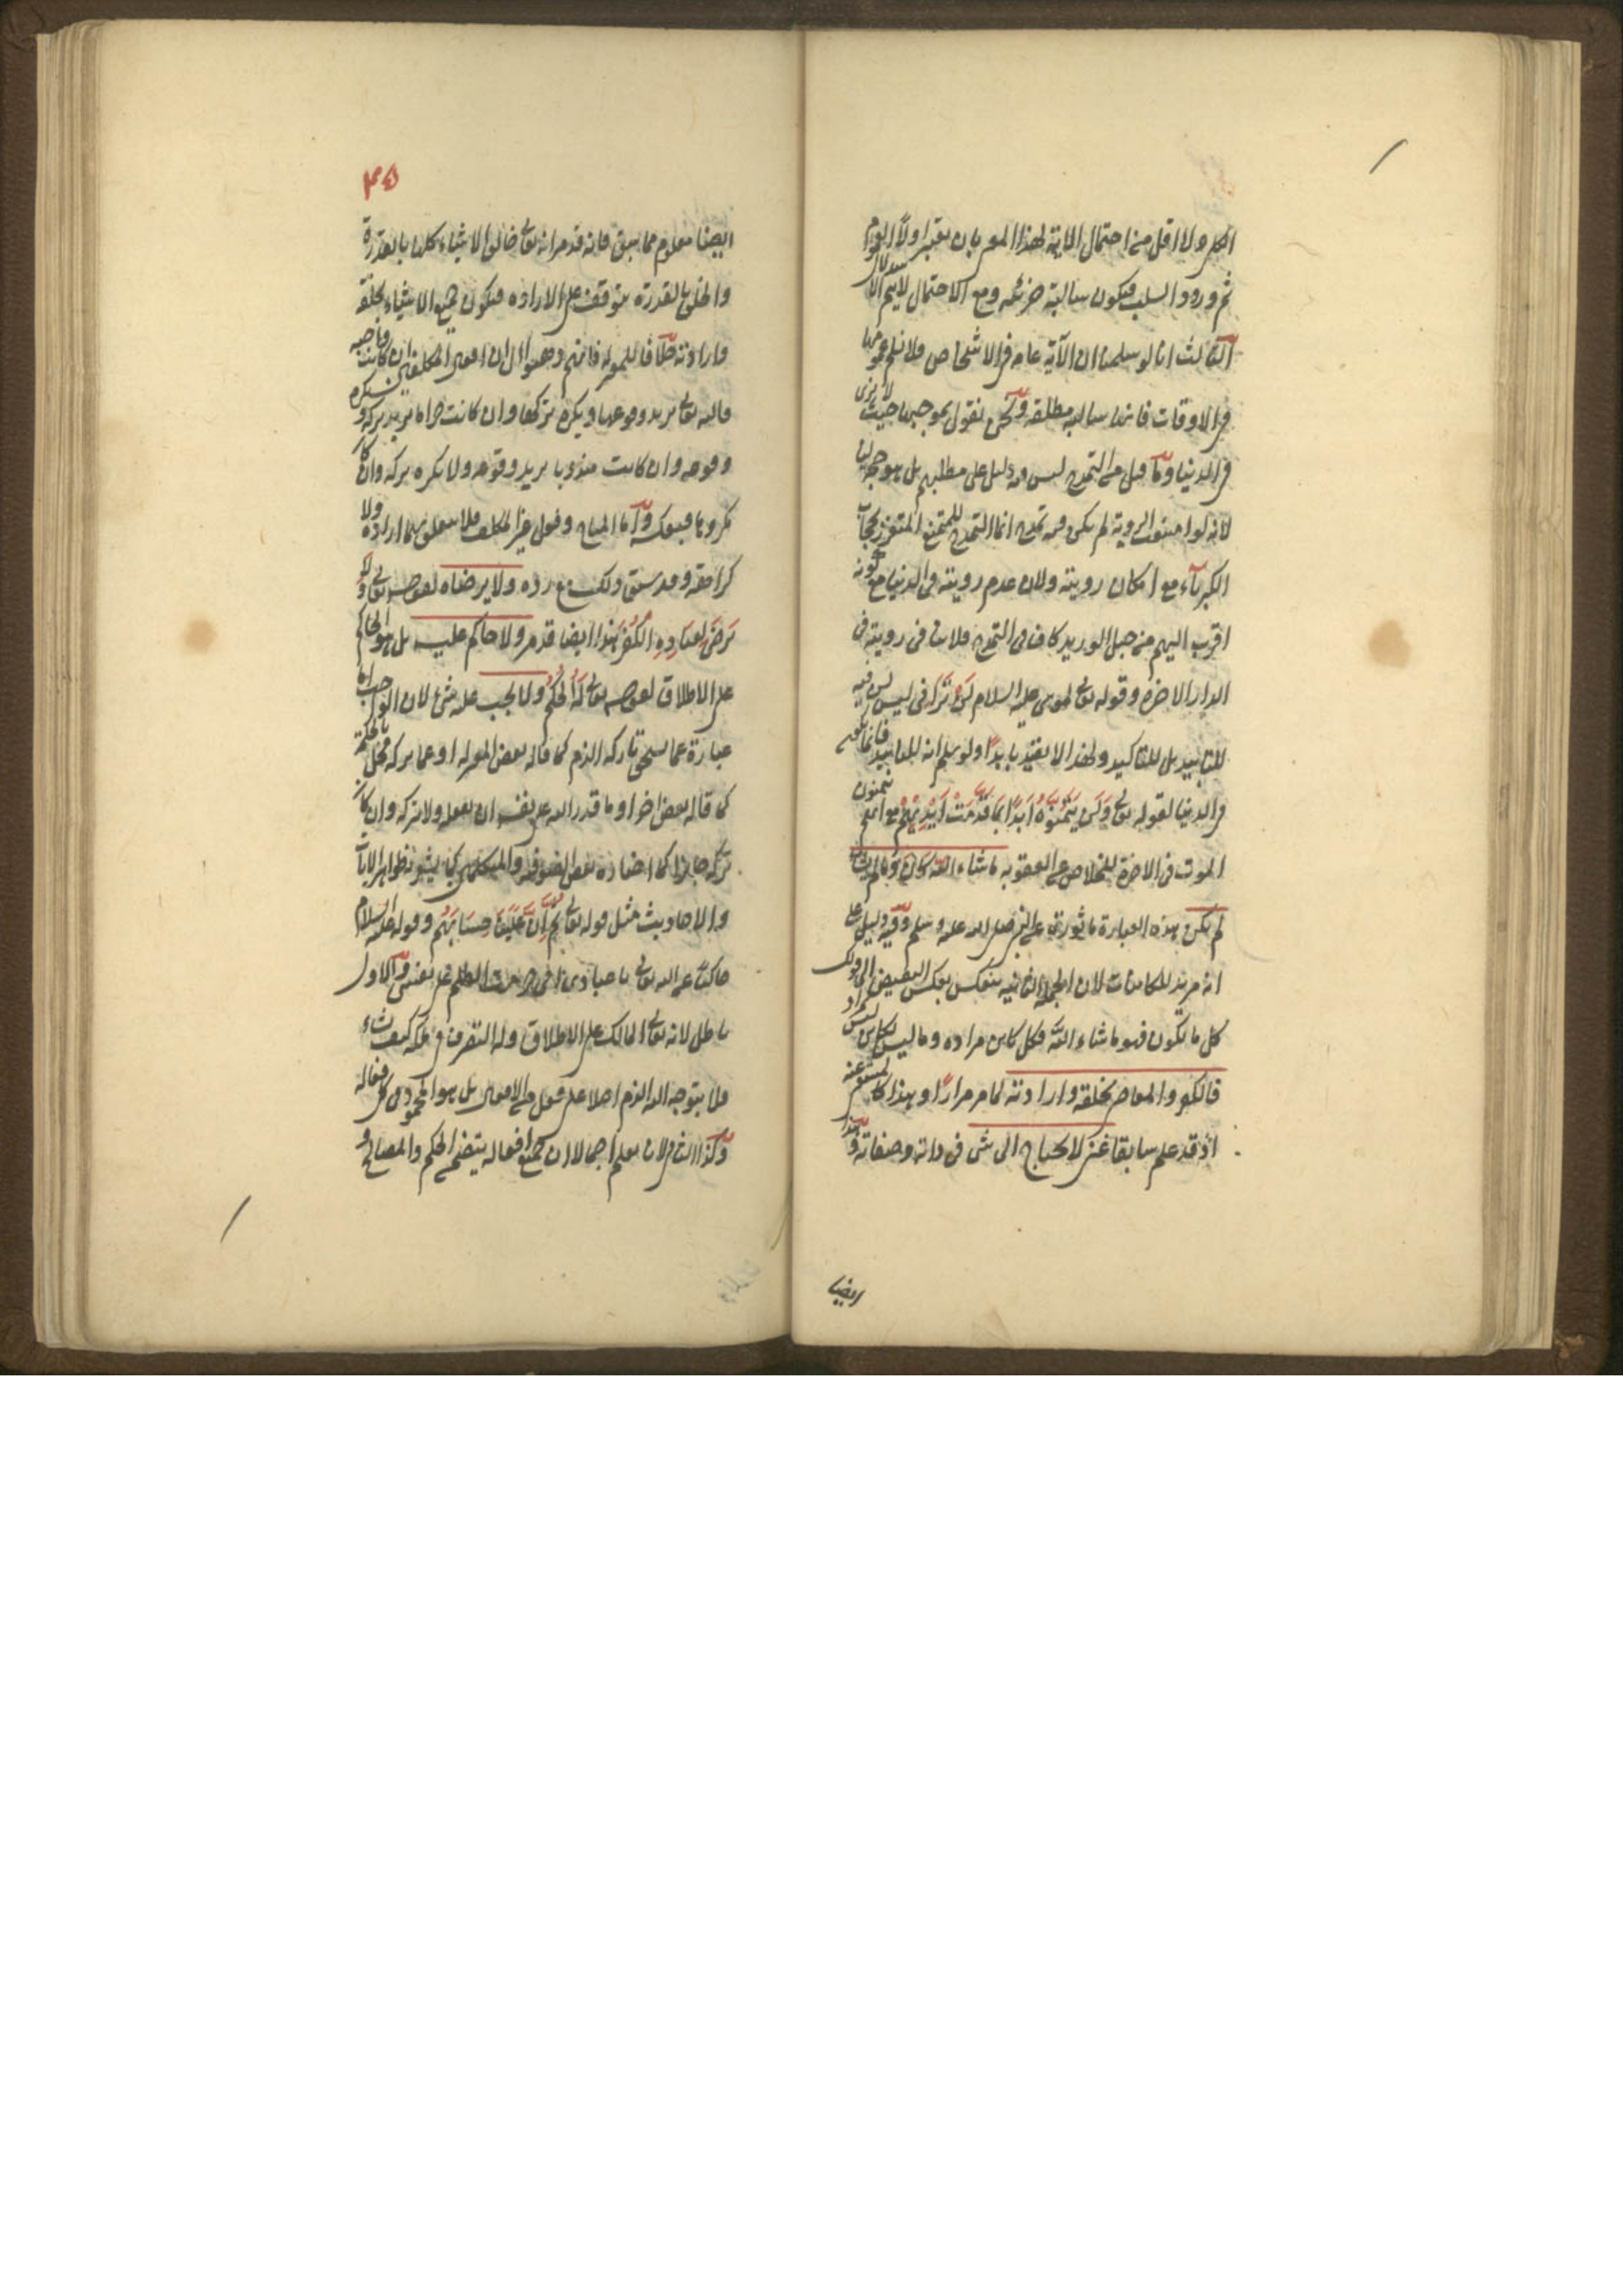 الكل ولا اقل من احتمال الاية لهذا المعنى بان يعتبر اولا العموم
ثم ورود السلب فيكون سالبة جزئية ومع الاحتمال لا يتم الاستدلال
الثالث انا لو سلمنا ان الآية عامة في الاشخاص فلا نسلم عمومها
في الاوقات فانها سالبة مطلقة ونحن نقول بموجبها حيث لا يرى
في الدنيا وما قيل من التمدح ليس فيه دليل على مطلبهم بل هو حجة لنا
لانه لو امتنعت الروية لم يكن فيه تمدح انما التمدح للممتنع المتعزز بحجاب
الكبرياء مع امكان رويته ولان عدم رويته في الدنيا مع كونه
اقرب اليهم من حبل الوريد كاف في التمدح فلا ينافي رويته في
الدار الاخرة وقوله تعالى لموسى عليه السلام لن تراني ليس لن فيه
للتابيد بل للتاكيد ولهذا لا يقيد بابدا ولو سلم انه للتابيد فانما هو
في الدنيا لقوله تعالى ولن يتمنوه ابدا بما قدمت ايديهم مع انهم يتمنون
الموت في الاخرة للخلاص عن العقوبة ما شاء الله كان وما لم يشأ
لم يكن هذه العبارة ماثورة عن النبي صلى الله عليه وسلم وفيه دليل على
انه مريد للكاينات لان الجملة الثانية ينعكس بعكس النقيض الى قولك
كل ما يكون فهو ما شاء الله فكل كاين مراده وما ليس بكاين ليس بمراد
فالكفر والمعاصي بخلقه وارادته لما مر مرارا وبهذا
اذ قد علم سابقا غني لا يحتاج الى شي في ذاته وصفاته وهذا
ايضا
٤٥
ايضا معلوم مما سبق فانه قد مر انه تعالى خالق الاشياء كلها بالقدرة
والخلق بالقدرة يتوقف على الارادة فيكون جميع الاشياء بخلقه
وارادته خلافا للمعتزلة فانهم ذهبوا الى ان افعال المكلفين ان كانت واجبة
فالله تعالى يريد وقوعها ويكره تركها وان كانت حراما يريد تركه ويكره
وقوعه وان كانت مندوبا يريد وقوعه ولا يكره تركه وان كان
مكروها فبعكسه واما المباح وفعل غير المكلف فلا يتعلق بهما ارادة ولا
كراهة وقد سبق ذلك مع رده ولا يرضاه لقوله تعالى ولا
يرضى لعباده الكفر هذا ايضا قد مر ولا حاكم عليه بل هو الحاكم
على الاطلاق لقوله تعالى له الحكم ولا يجب عليه شئ لان الواجب اما
عبارة عما يستحق تاركه الذم كما قاله بعض المعتزلة او عما تركه مخل بالحكمة
كما قاله بعض اخر او ما قدر الله على نفسه ان يفعله ولا يتركه وان كان
تركه جايزا كما اختاره بعض الصوفية والمتكلمين كما يشعر به ظواهر الايات
والاحاديث مثل قوله تعالى ثم ان علينا حسابهم وقوله عليه السلام
حاكيا عن الله تعالى يا عبادي اني حرمت الظلم على نفسي والاول
باطل لانه تعالى المالك على الاطلاق وله التصرف في ملكه كيف يشاء
فلا يتوجه اليه الذم اصلا على فعل من الافعال بل هو المحمود في كل فعاله
وكذا الثاني لانا نعلم اجمالا ان جميع افعاله يتضمن الحكم والمصالح و